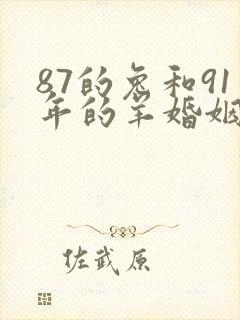 87的兔和91
年的羊婚姻
佐武原